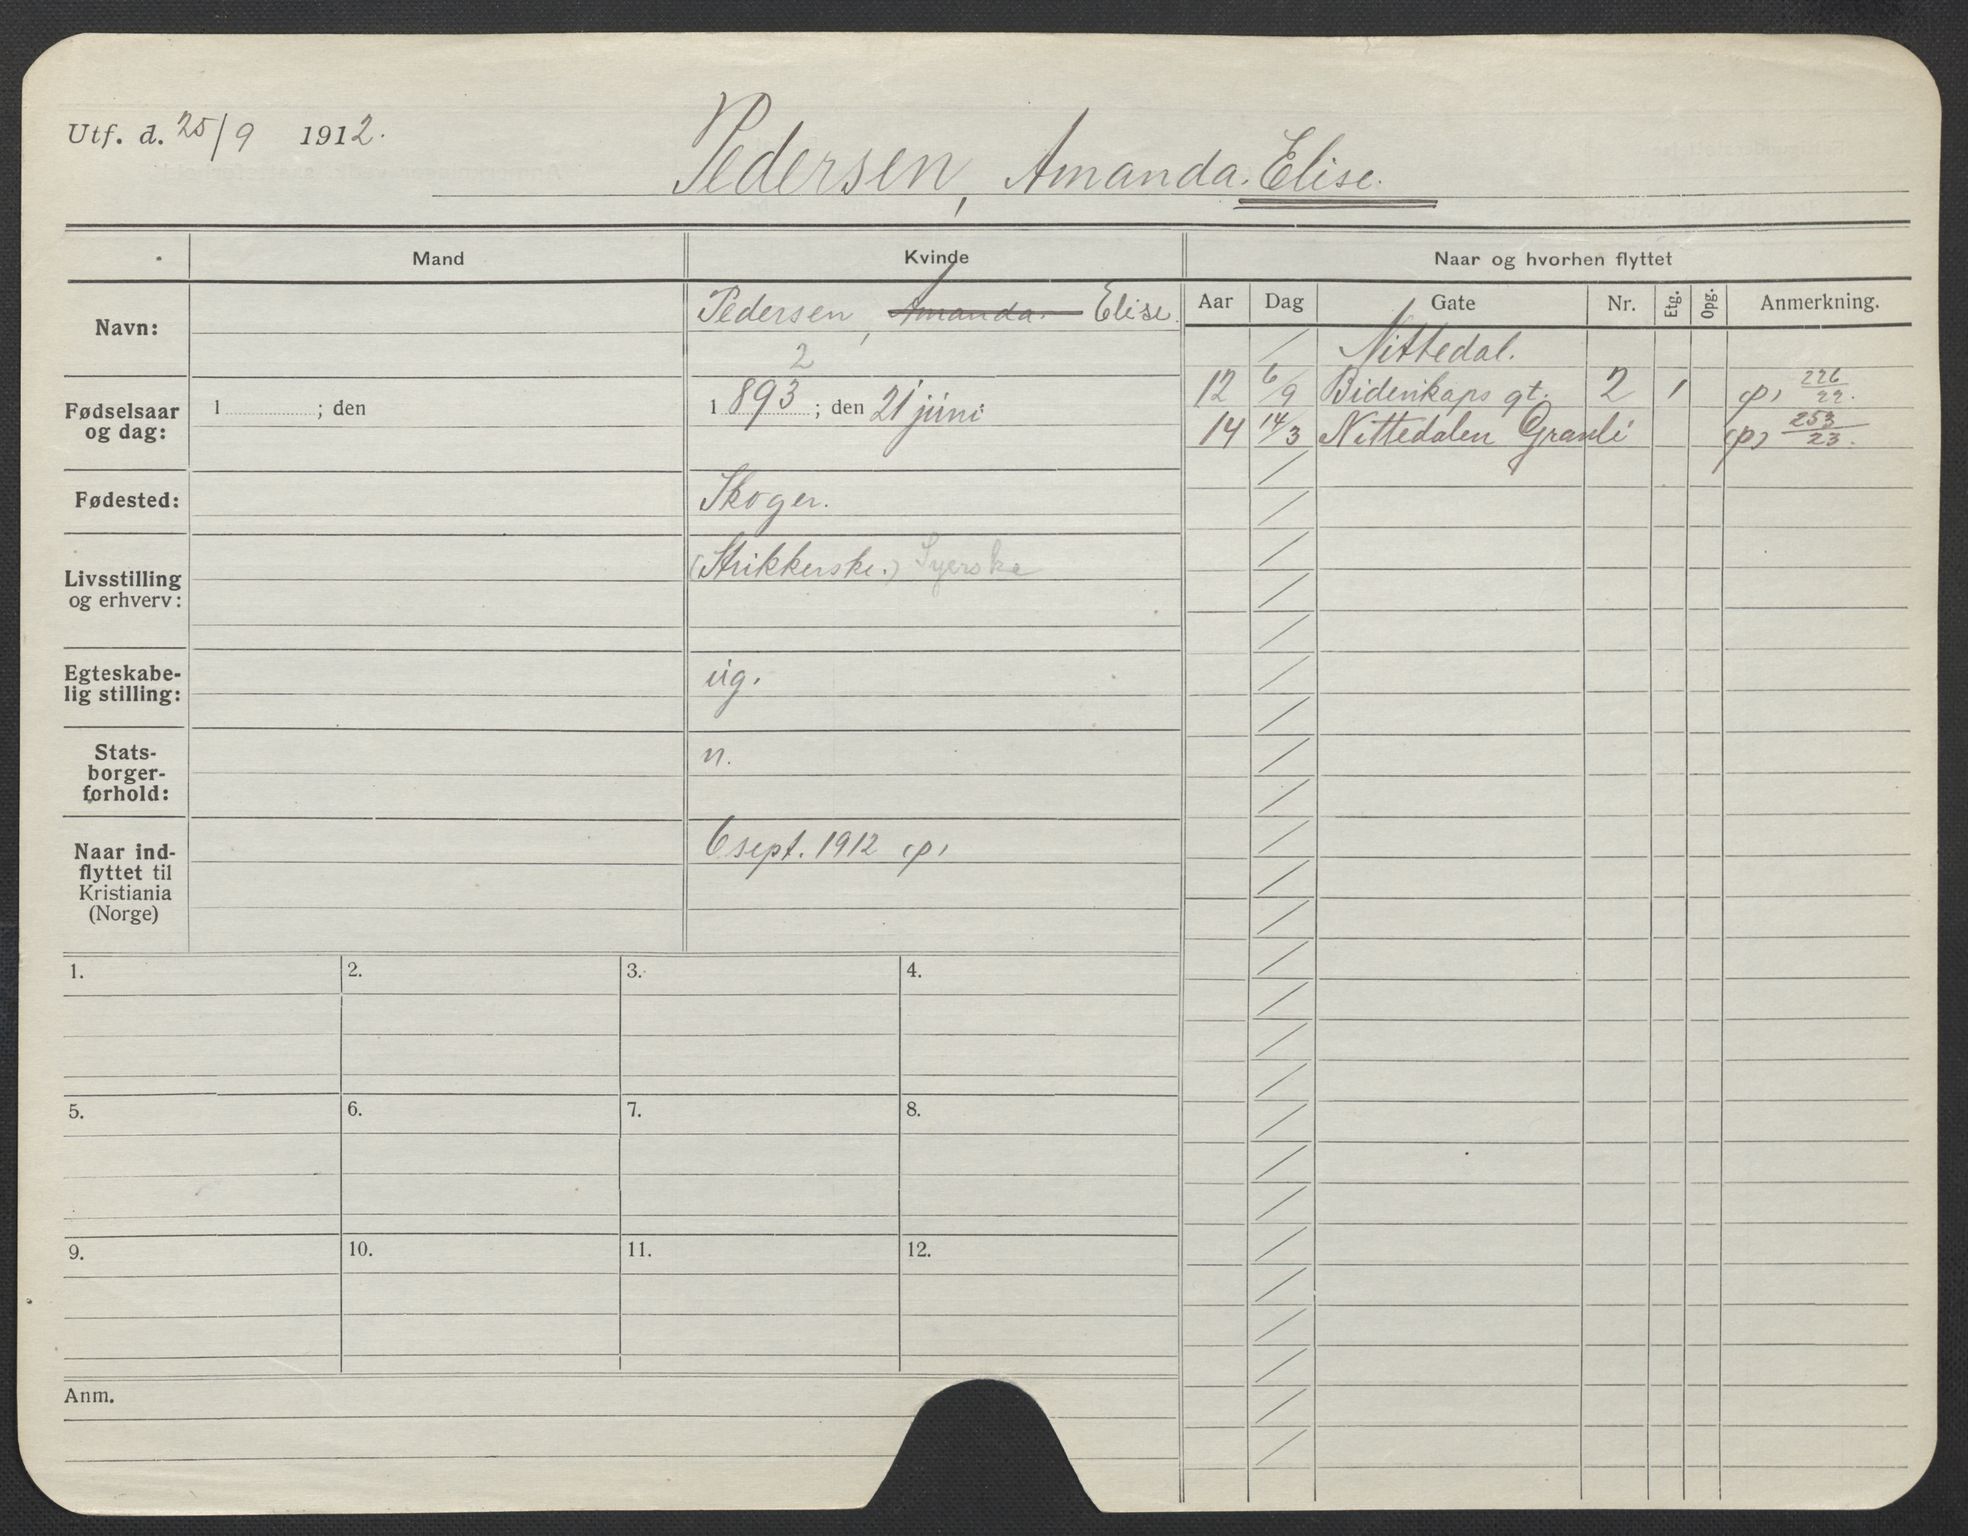 Utf. d. 25/9 1912.
Pedersen, Amanda. Elise.
Mand
Kvinde
Naar og hvorhen flyttet
Navn:
Pedersen, Amanda. Elise.
2
Fødselsaar og dag:
1 ; den
1 893 ; den 21 juni
Fødested:
Skoger.
Livsstilling og erhverv:
(Strikkerske.) Syerske
Egteskabe-
lig stilling:
ug.
Stats-
borger-
forhold:
n.
Naar ind-
flyttet til
Kristiania
(Norge)
6 sept. 1912 (p)
Aar Dag Gate Nr. Etg. Opg. Anmerkning.
/ Nittedal.
12 6/9 Bidenkaps gt. 2 1 (p) 226/22.
14 14/3 Nittedalen Granli (p) 253/23.
1. 2. 3. 4.
5. 6. 7. 8.
9. 10. 11. 12.
Anm.